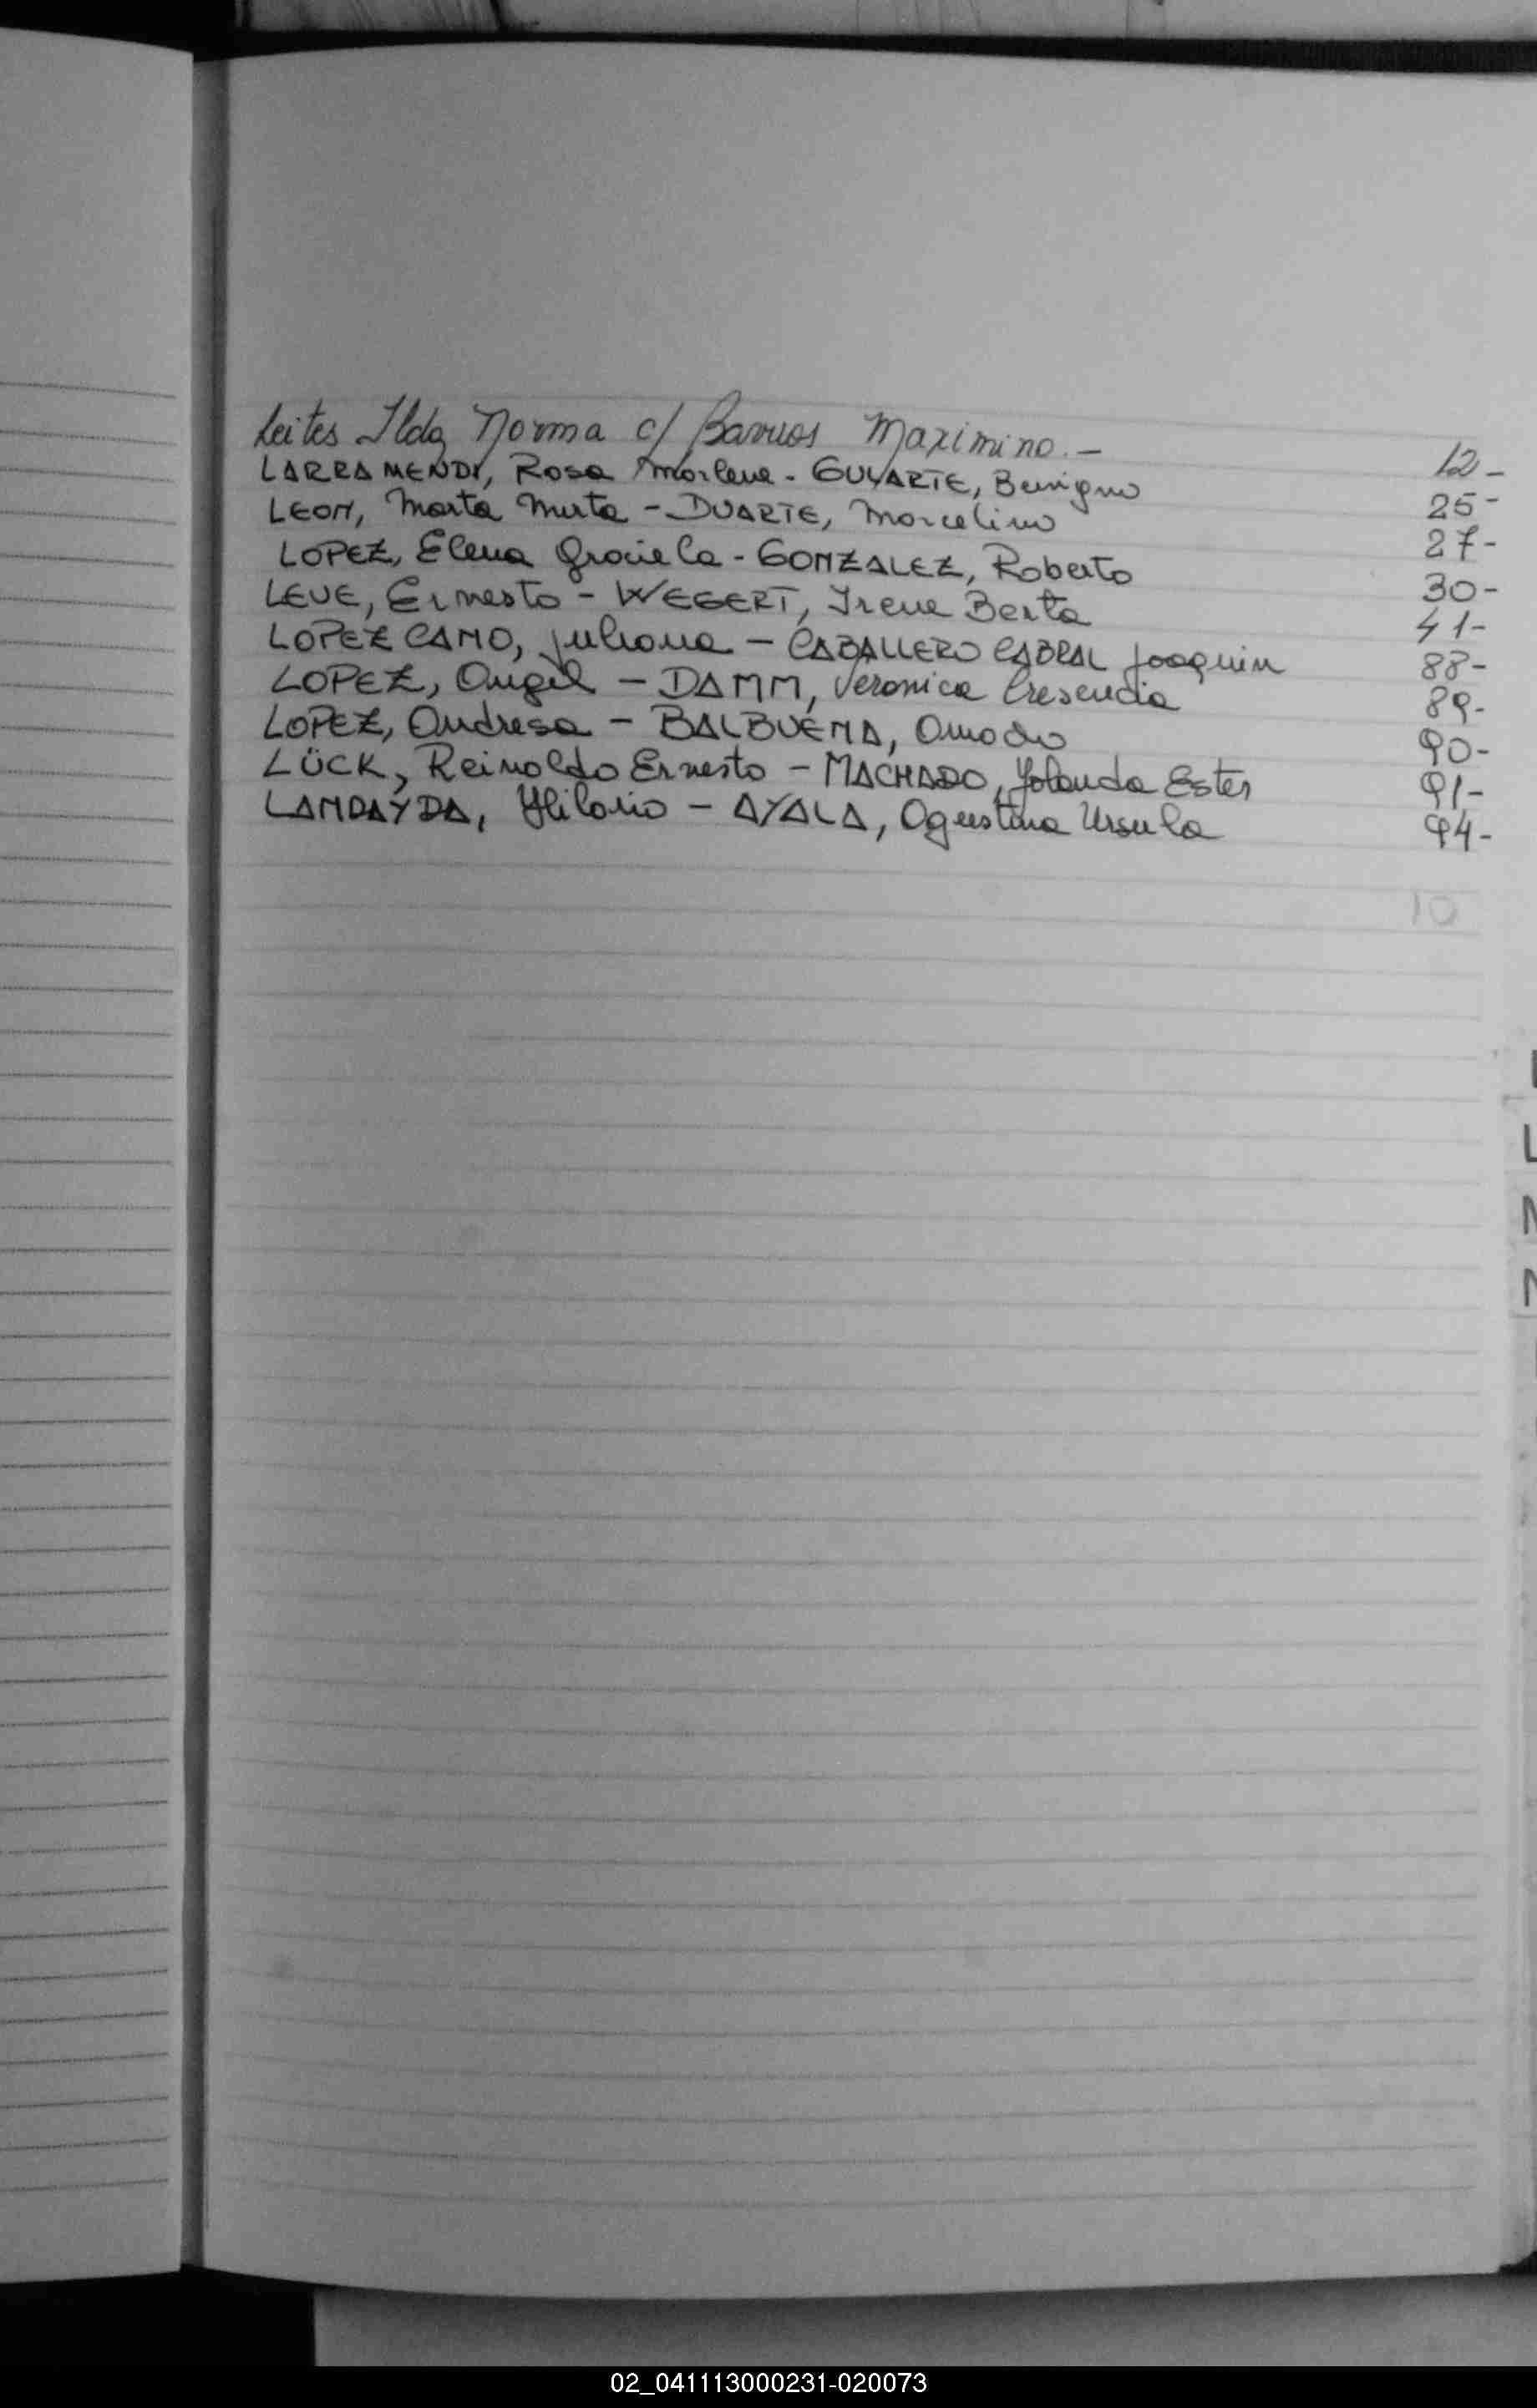 Leites Ilda Norma c/ Barrios Maximino.- 12-
LARRAMENDI, Rosa Marlene - GULARTE, Benigno 25-
LEON, Marta Mirta - DUARTE, Marcelino 27-
LOPEZ, Elena Graciela - GONZALEZ, Roberto 30-
LEUE, Ernesto - WEGERT, Irene Berta 41-
LOPEZ CANO, Juliana - CABALLERO CABRAL Joaquin 88-
LOPEZ, Angel - DAMM, Veronica Cresencia 89-
LOPEZ, Andresa - BALBUENA, Amado 90-
LÜCK, Reinoldo Ernesto - MACHADO, Yolanda Ester 91-
LANDAYDA, Hilario - AYALA, Agustina Ursula 94-
10
L
N
02_041113000231-020073